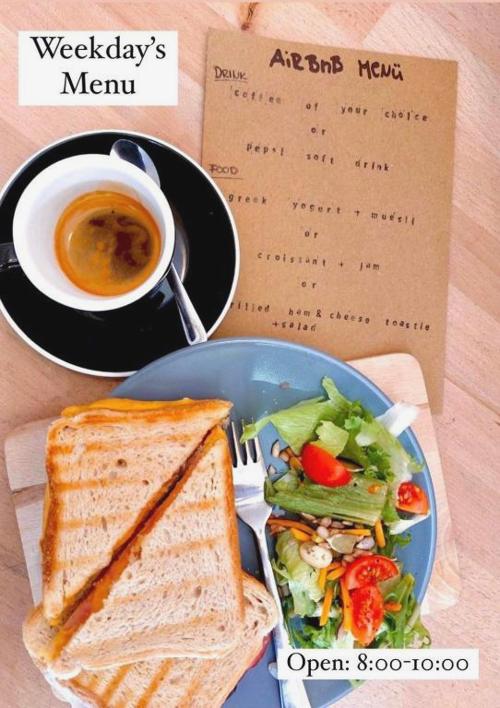 Weekday's
Menu
AiRBnB MENü
DRINK
coffee of your choice
or
pepsi soft drink
FOOD
greek yogurt + muesli
or
croissant + jam
or
rilled ham & cheese toastie
+salad
Open: 8:00-10:00